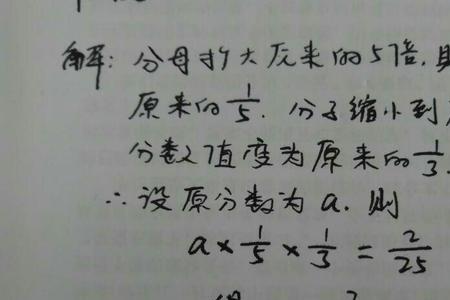 解：分母扩大原来的5倍.则
原来的1/5. 分子缩小到
分数值变为原来的1/3.
∴设原分数为a.则
a×1/5×1/3=2/25